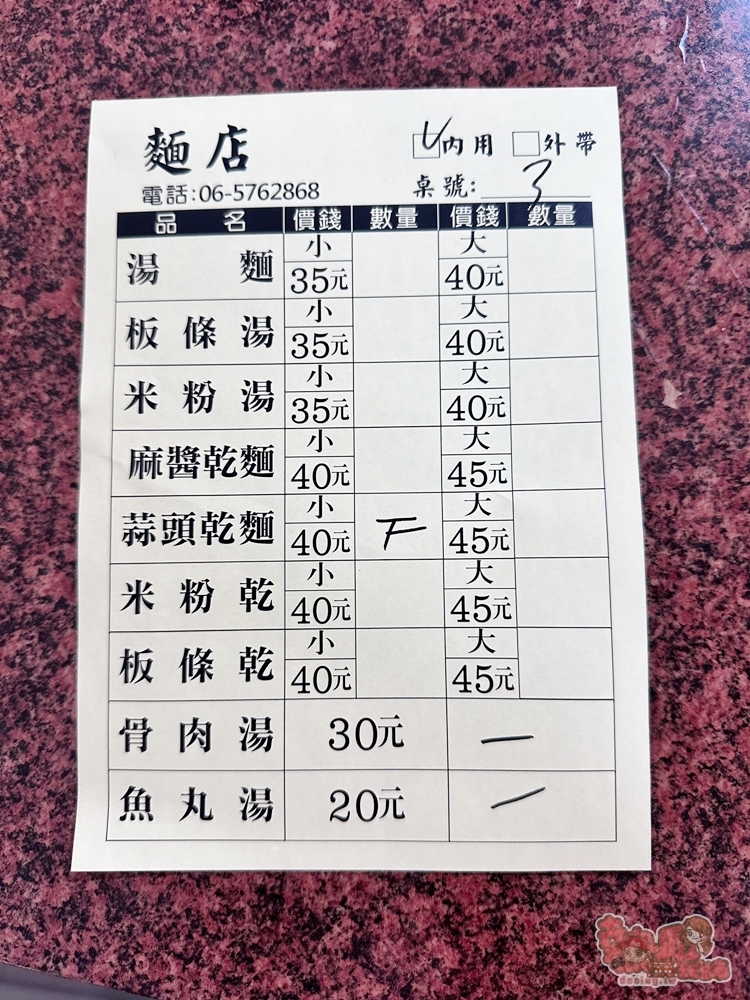 麵店
內用 外帶
電話:06-5762868
桌號: 3
品名 價錢 數量 價錢 數量
湯麵 小 35元 大 40元
板條湯 小 35元 大 40元
米粉湯 小 35元 大 40元
麻醬乾麵 小 40元 大 45元
蒜頭乾麵 小 40元 大 45元
米粉乾 小 40元 大 45元
板條乾 小 40元 大 45元
骨肉湯 30元 一
魚丸湯 20元 一